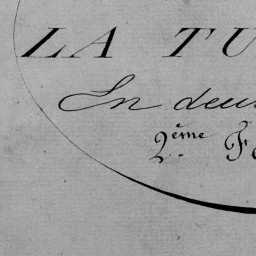 LA TU
En deu
2.ème F